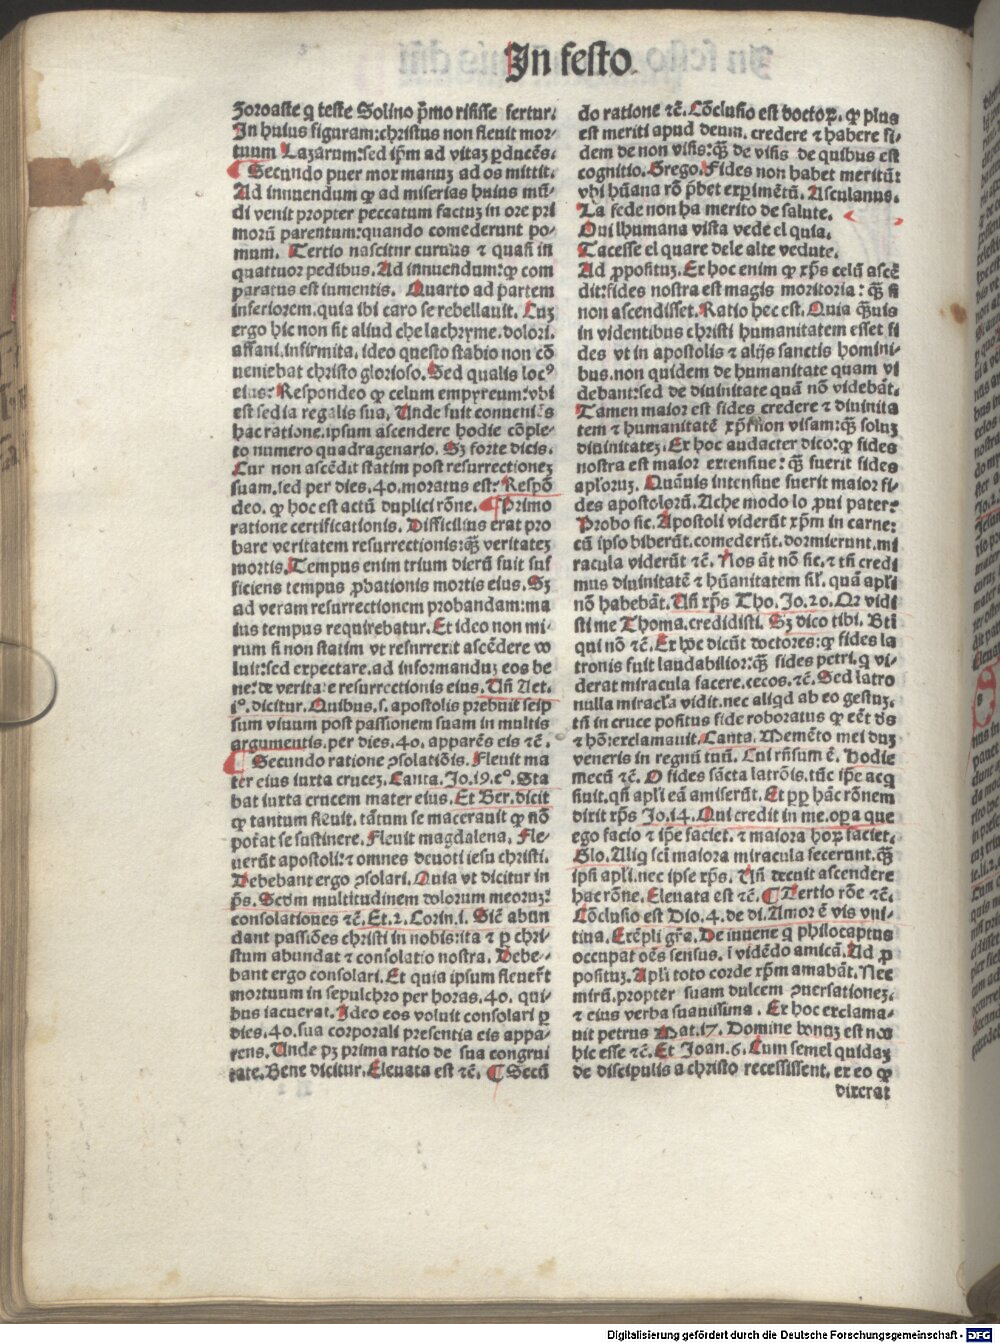 In festo.
Zoroaste q teste Solino p̄mo risisse fertur.
In huius figuram:christus non fleuit mor-
tuum Lazarum:sed ip̄m ad vitaꝫ ꝑducēs.
¶ Secundo puer mor manuꝫ ad os mittit.
Ad innuendum ꝙ ad miserias huius mū-
di venit propter peccatum factuꝫ in ore pri
morū parentum:quando comederunt po-
mum. Tertio nascitur curuus ⁊ quasi in
quattuor pedibus. Ad innuendum:ꝙ com
paratus est iumentis. Quarto ad partem
inferiorem.quia ibi caro se rebellauit. Luꝫ
ergo hic non sit aliud che lachryme.dolori.
affani.infirmita.ideo questo stabio non cō
ueniebat christo glorioso. Sed qualis locꝰ
eius: Respondeo ꝙ celum empyreum:vbi
est sedia regalis sua. Unde fuit conueniēs
hac ratione.ipsum ascendere hodie cōple-
to numero quadragenario. Sꝫ forte dicis.
Cur non ascēdit statim post resurrectioneꝫ
suam.sed per dies.40.moratus est: Respō
deo. ꝙ hoc est actū duplici rōne. ¶ Primo
ratione certificationis. Difficilius erat pro
bare veritatem resurrectionis:qꝫ̄ veritateꝫ
mortis. Tempus enim trium dierū fuit suf
ficiens tempus ꝓbationis mortis eius. Sꝫ
ad veram resurrectionem probandam:ma
ius tempus requirebatur. Et ideo non mi-
rum si non statim vt resurrexit ascēdere vo
luit:sed expectare.ad informanduꝫ eos be
ne:de veritate resurrectionis eius. Un̄ Act.
iͦ. dicitur. Quibus.s.apostolis prebuit seip
sum viuum post passionem suam in multis
argumentis.per dies.40.apparēs eis ⁊c̄.
¶ Secundo ratione ↄsolatiōis. Fleuit ma
ter eius iuxta cruceꝫ. Canta. Jo.19.cͦ. Sta
bat iuxta crucem mater eius. Et Ber.dicit
ꝙ tantum fleuit. tātum se macerauit ꝙ nō
poťat se sustinere. Fleuit magdalena. Fle-
uerūt apostoli:⁊ omnes deuoti iesu christi.
Debebant ergo ↄsolari. Quia vt dicitur in
ps̄. Sc̄dm multitudinem dolorum meoruꝫ:
consolationes ⁊c̄. Et.2. Corin.i. Sic̄ abun
dant passiōes christi in nobis:ita ⁊ ꝑ chri-
stum abundat ⁊ consolatio nostra. Debe-
bant ergo consolari. Et quia ipsum fleuer̄t
mortuum in sepulchro per horas.40. qui-
bus iacuerat. Ideo eos voluit consolari ꝑ
dies.40.sua corporali presentia eis appa-
rens. Unde pꝫ prima ratio de sua congrui
tate. Bene dicitur. Eleuata est ⁊c̄. ¶ Secū
do ratione ⁊c̄. Cōclusio est doctoꝝ. ꝙ plus
est meriti apud deum. credere ⁊ habere fi-
dem de non visis:qꝫ̄ de visis de quibus est
cognitio. Grego. Fides non habet meritū:
vbi hūana rō p̄bet experimētū. Asculanus.
La fede non ha merito de salute.
Oui lhumana vista vede el quia.
Tacesse el quare dele alte vedute.
Ad ꝓpositуꝫ. Ex hoc enim ꝙ xp̄s celū ascē
dit:fides nostra est magis moritoria: qꝫ̄ si
non ascendisset. Ratio hec est. Quia qꝫ̄uis
in videntibus christi humanitatem esset fi
des vt in apostolis ⁊ alijs sanctis homini-
bus.non quidem de humanitate quam vi
debant:sed de diuinitate quā nō videbāt.
Tamen maior est fides credere ⁊ diuinita
tem ⁊ humanitatē xp̄i non visam:qꝫ̄ soluꝫ
diuinitateꝫ. Ex hoc audacter dico:ꝙ fides
nostra est maior extensiue: qꝫ̄ fuerit fides
ap̄loruꝫ. Quāuis intensiue fuerit maior fi-
des apostolorū. Ache modo lo ꝓui pater?
Probo sic. Apostoli viderūt xp̄m in carne:
cū ipso biberūt.comederūt.dormierunt.mi
racula viderūt ⁊c̄. Nos āt nō sic.⁊ tn̄ credi
mus diuinitatē ⁊ hūanitatem sil̄. quā ap̄li
nō habebāt. Un̄ xp̄s Tho. Jo.20. Qꝛ vidi
sti me Thoma.credidisti. Sꝫ dico tibi. Bt̄i
qui nō ⁊c̄. Ex hoc dicūt doctores:ꝙ fides la
tronis fuit laudabilior:qꝫ̄ fides petri.q vi-
derat miracula facere.cecos.⁊c̄. Sed latro
nulla miracl̄a vidit.nec aliqd ab eo gestuꝫ.
tn̄ in cruce positus fide roboratus ꝙ eēt d̄s
⁊ hō:exclamauit. Canta. Memēto mei duꝫ
veneris in regnū tuū. Cui rn̄sum ē. Hodie
mecū ⁊c̄. O fides sācta latrōis.tūc ip̄e acq
siuit.qn̄ ap̄li eā amiserūt. Et ꝓp̄ hāc rōnem
dixit xp̄s Jo.14. Qui credit in me.oꝑa que
ego facio ⁊ ip̄e faciet.⁊ maiora hoꝝ faciet.
Glo. Aliq sc̄i maiora miracula fecerunt.qꝫ̄
ipsi ap̄li.nec ipse xp̄s. Un̄ decuit ascendere
hac rōne. Eleuata est ⁊c̄. ¶ Tertio rōe ⁊c̄.
Cōclusio est Dio.4.de di. Amor ē vis vni-
tiua. Exēpli gr̄a. De iuuene q philocaptus
occupat oēs sensus. ī vidēdo amicā. Ad ꝓ
posituꝫ. Ap̄li toto corde xp̄m amabāt. Nec
mirū.propter suam dulcem ↄuersationeꝫ.
⁊ eius verba suauissima. Ex hoc exclama-
uit petrus Mat.17. Domine bonuꝫ est nos
hic esse ⁊c̄. Et Joan.6. Cum semel quidaꝫ
de discipulis a christo recessissent. ex eo ꝙ
dixerat
Digitalisierung gefördert durch die Deutsche Forschungsgemeinschaft - DFG